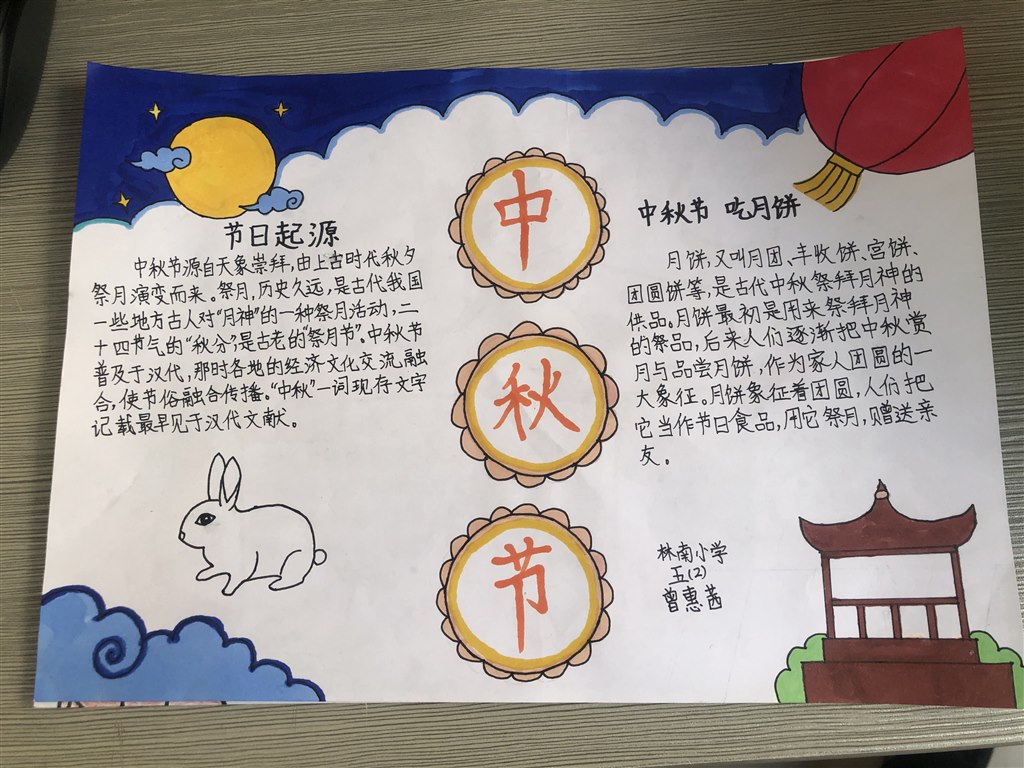 中
秋
节
节日起源
中秋节源自天象崇拜,由上古时代秋夕
祭月演变而来。祭月,历史久远,是古代我国
一些地方古人对“月神”的一种祭月活动,二
十四节气的“秋分”,是古老的“祭月节”。中秋节
普及于汉代,那时各地的经济文化交流融
合,使节俗融合传播。“中秋”一词现存文字
记载最早见于汉代文献。
中秋节 吃月饼
月饼,又叫月团、丰收饼、宫饼、
团圆饼等,是古代中秋祭拜月神的
供品。月饼最初是用来祭拜月神
的祭品,后来人们逐渐把中秋赏
月与品尝月饼,作为家人团圆的一
大象征。月饼象征着团圆,人们把
它当作节日食品,用它祭月,赠送亲
友。
林南小学
五(2)
曾惠茜